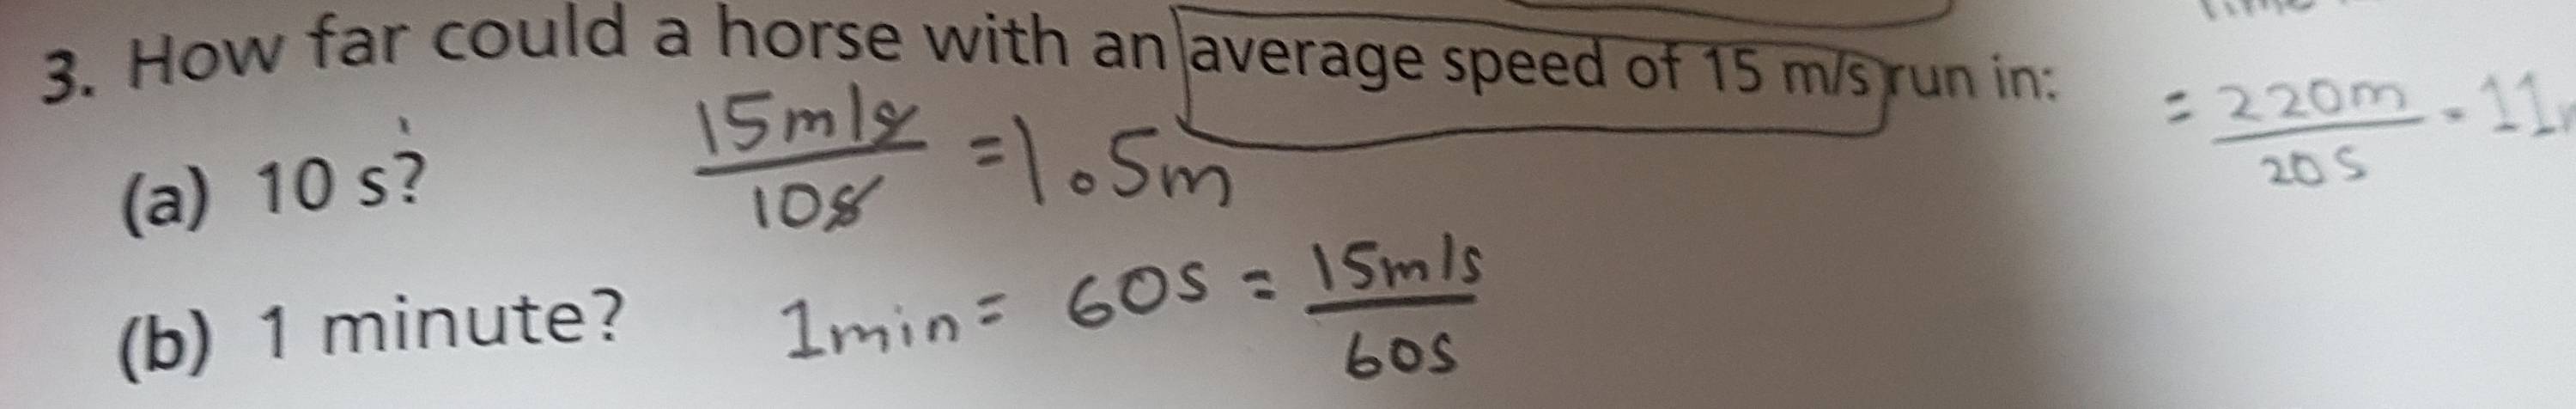 3. How far could a horse with an average speed of 15 m/s run in:
(a) 10 s?
15m/s
10s
=1.5m
(b) 1 minute?
1min = 60s = 15m/s
60s
= 220m
20s